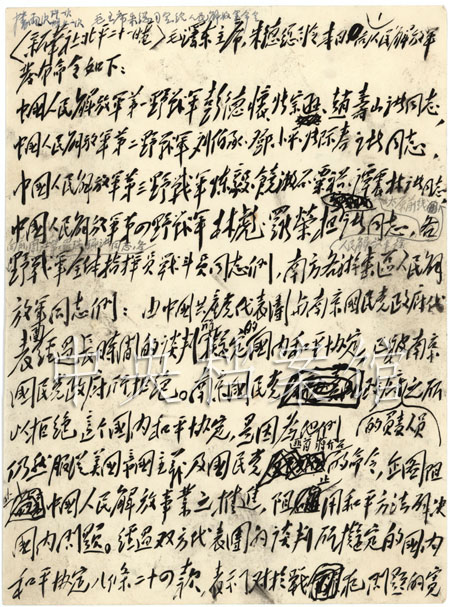 （新华社北平二十一日）毛泽东主席、朱德总司令本日向人民解放军
发布命令如下：
中国人民解放军第一野战军彭德怀张宗逊、赵寿山诸同志，
中国人民解放军第二野战军刘伯承、邓小平张际春诸同志，
中国人民解放军第三野战军陈毅、饶漱石粟裕、谭震林诸同志，
中国人民解放军第四野战军林彪、罗荣桓诸同志，各
野战军全体指挥员战斗员同志们，南方各游击区人民解
放军同志们：由中国共产党代表团与南京国民党政府代
表团经过长时间的谈判所拟定的国内和平协定，已被南京
国民党政府所拒绝。南京国民党
以拒绝这个国内和平协定，是因为他们
的负责人员
仍然服从美国帝国主义及国民党的命令，企图阻
止中国人民解放事业之推进，阻止用和平方法解决
国内问题。经过双方代表团的谈判所拟定的国内
和平协定八条二十四款，表示了对于战犯问题的宽
中央档案馆